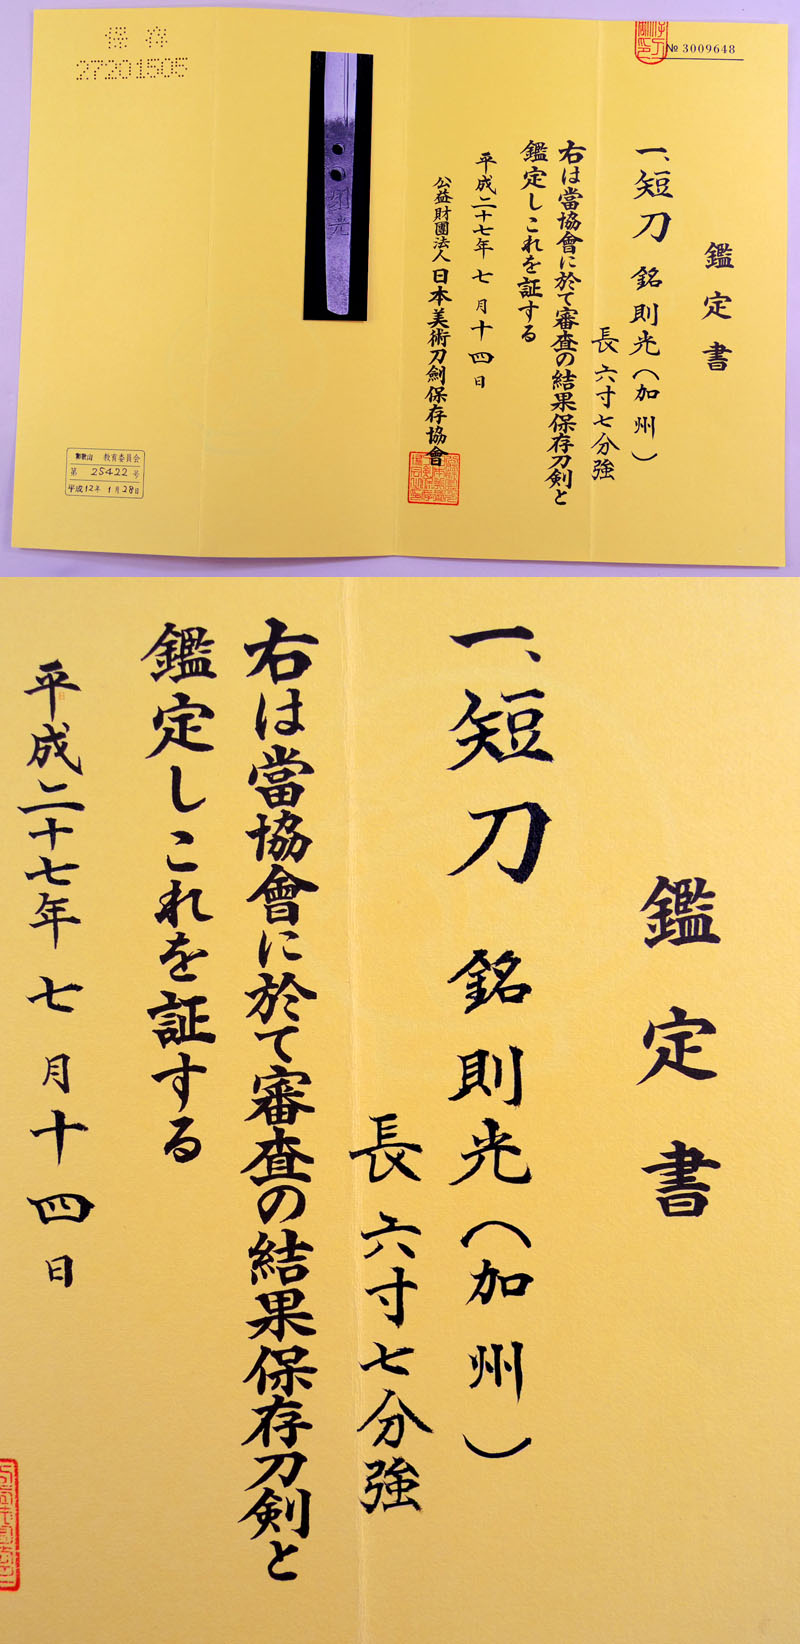 № 3009648
鑑定書
一、短刀 銘 則光（加州）
長 六寸七分強
右は當協會に於て審査の結果保存刀剣と
鑑定しこれを証する
平成二十七年 七月十四日
公益財團法人 日本美術刀劍保存協會
則光
保存
27201505
和歌山 教育委員会
第 25422 号
平成12年 1月28日
鑑定書
一、短刀 銘 則光（加州）
長 六寸七分強
右は當協會に於て審査の結果保存刀剣と
鑑定しこれを証する
平成二十七年 七月十四日